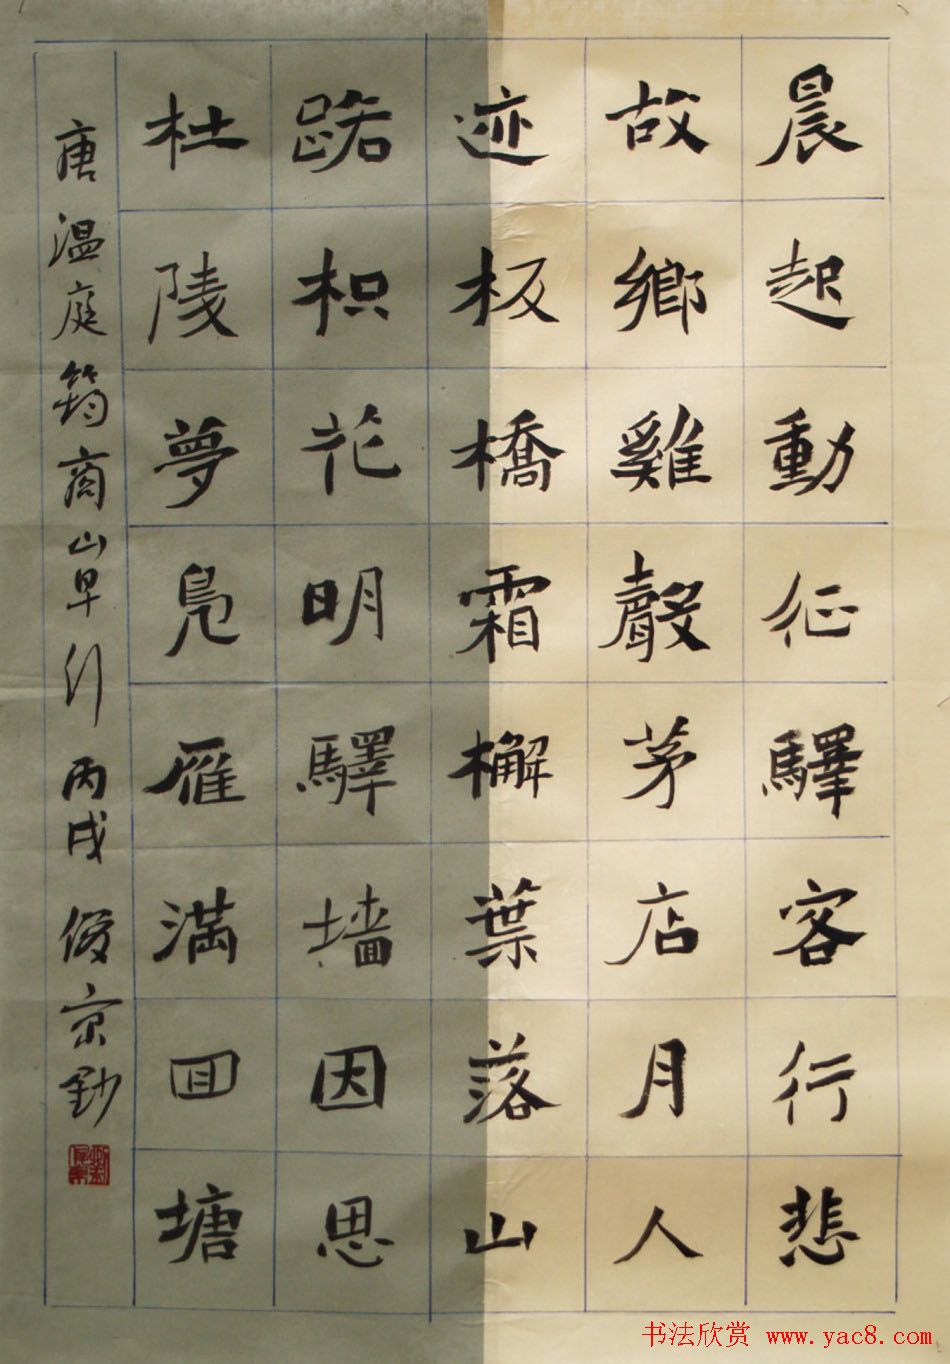 晨起動征驛客行悲
故鄉雞聲茅店月人
迹板橋霜檞葉落山
路枳花明驛墙因思
杜陵夢鳧雁滿囬塘
唐温庭筠商山早行丙戌俊京鈔
书法欣赏 www.yac8.com